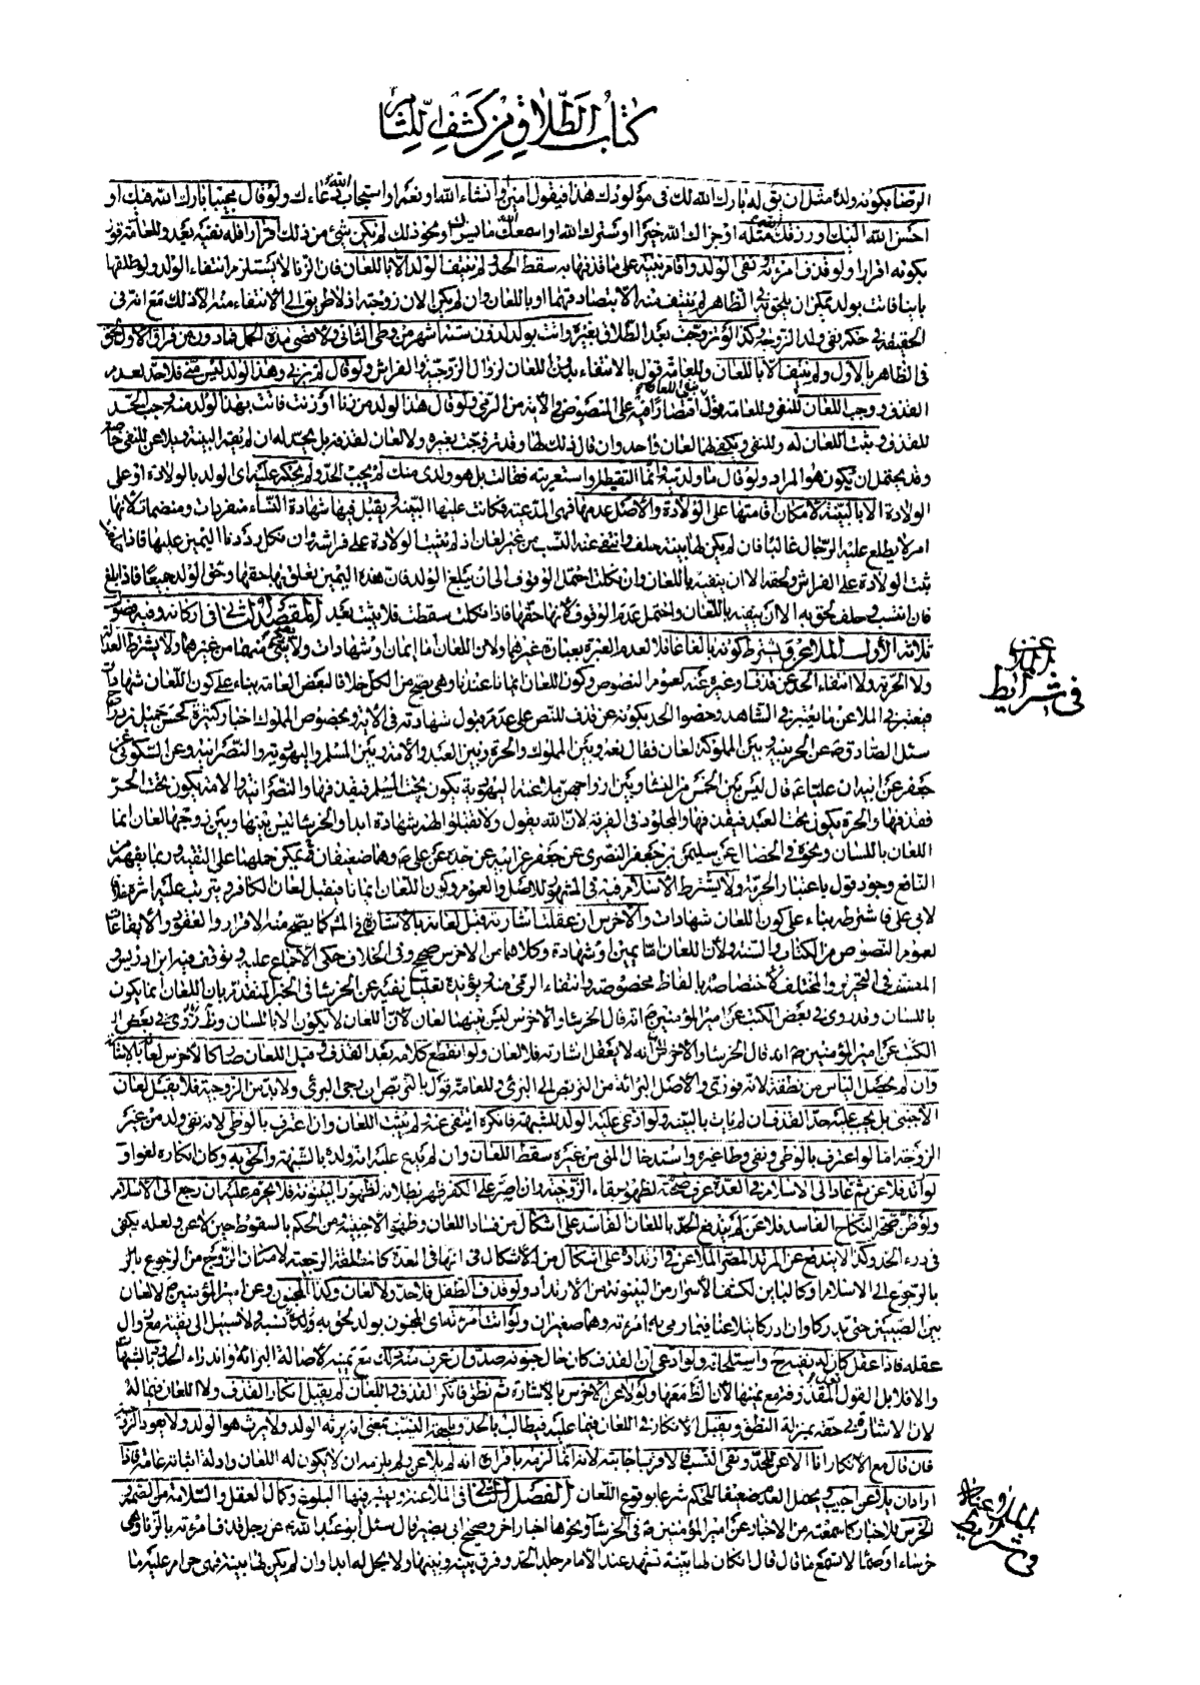 كتاب الطلاق من كشف اللثام
الرضا بكونه ولده مثل ان يق له بارك الله لك في مولودك هذا فيقول امين او انشاء الله او نعم او استجاب الله دعاءك ولو قال مجيبا بارك الله فيك او
احسن الله اليك او رزقك مثله او جزاك الله خيرا او سترك الله او اسمعك الله ما يسرك ونحو ذلك لم يكن شئ من ذلك اقرارا فله نفيه بعد وللعامة قول
بكونه اقرارا ولو قذف امرأته ونفى الولد واقام بينة على ما قذفها به سقط الحد ولم ينتف الولد الا باللعان فان الزنا لا يستلزم انتفاء الولد ولو طلقها
باينا فاتت بولد يمكن ان يلحق به في الظاهر لم ينتف منه الا بتصادقهما او باللعان وان لم يكن الان زوجته اذ لا طريق الى الانتفاء منه الا ذلك مع انه في
الحقيقة في حكم نفي ولد الزوجة وكذا لو تزوجت بعد الطلاق بغيره واتت بولد لدون ستة اشهر من وطي الثاني ولاقصى مدة الحمل فما دون من فراق الاول لحق
في الظاهر بالاول ولم ينتف الا باللعان وللعامة قول بالانتفاء بدون اللعان لزوال الزوجية والفراش ولو قال لم تزني وهذا الولد ليس مني فلا حد لعدم
القذف ووجب اللعان للنفي وللعامة قول بنفي اللعان اقتصارا فيه على المنصوص في الاية من الرمي ولو قال هذا الولد من زنا او زنت فاتت بهذا الولد منه وجب الحد
للقذف وثبت اللعان له وللنفي ويكفي لهما لعان واحد وان قال ذلك لها وقد تزوجت بغيره ولا لعان لقذفه بل يحد له ان لم يقم البينة ويلاعن للنفي خاصة
وقد يحتمل ان يكون هو المراد ولو قال ما ولدتيه وانما التقطته او استعرتيه فقالت بل هو ولدي منك لم يجب الحد ولم يحكم عليه اي الولد بالولادة او على
الولادة الا بالبينة لامكان اقامتها على الولادة والاصل عدمها فهي المدعية فكانت عليها البينة ويقبل فيها شهادة النساء منفردات ومنضمات لانها
امر لا يطلع عليه الرجال غالبا فان لم يكن لها بينة حلف وانتفى عنه النسب من غير لعان اذ لم يثبت الولادة على فراشه وان نكل رددنا اليمين عليها فاذا حلفت
ثبت الولادة على الفراش ولحقه الا ان ينفيه باللعان وان نكلت احتمل الوقوف الى ان يبلغ الولد فان هذه اليمين يتعلق بها حقها وحق الولد جميعا فاذا بلغ
فان انتسب وحلف لحق به الا ان ينفيه باللعان واحتمل عدم الوقوف لانها حقها فاذا نكلت سقطت فلا يثبت بعد المقصد الثاني في اركانه وفيه فصول
ثلاثة الاول الملاعن ويشترط كونه بالغا عاقلا لعدم العبرة بعبارة غيرهما ولان اللعان اما ايمان او شهادات ولا يصح شئ منهما من غيرهما ولا يشترط العدالة
ولا الحرية ولا انتفاء الحد عن قذف او غيره عنه لعموم النصوص وكون اللعان ايمانا عندنا وهي يصح من الكل خلافا لبعض العامة بناء على كون اللعان شهادات
فيعتبر في الملاعن ما يعتبر في الشاهد وخصوا الحد بكونه عن قذف للنص على عدم قبول شهادته في الاية وبخصوص المملوك اخبار كثيرة كحسن جميل بن دراج
سئل الصادق ع عن الحر بينه وبين المملوكة لعان فقال نعم وبين المملوك والحرة وبين العبد والامة وبين المسلم واليهودية والنصرانية وعن السكوني عن
جعفر عن ابيه ان عليا ع قال ليس بين الخمس من النساء وبين ازواجهن ملاعنة اليهودية يكون تحت المسلم فيقذفها والنصرانية والامة يكون تحت الحر
فقذفها والحرة يكون تحت العبد فيقذفها والمجلود في الفرية لان الله يقول ولا تقبلوا لهم شهادة ابدا والخرساء ليس بينها وبين زوجها لعان انما
اللعان باللسان ونحوه في الخصال عن سليمن بن جعفر البصري عن جعفر عن ابيه عن جده عن علي ع وهما ضعيفان ويمكن حملهما على التقية وربما يفهم من
النافع وجود قول باعتبار الحرية ولا يشترط الاسلام فيه في المشهور للاصل والعموم وكون اللعان ايمانا فيقبل لعان الكافر ويترتب عليه اثره خلافا
لابي علي فاشترطه بناء على كون اللعان شهادات والاخرس ان عقلت اشارته قبل لعانه بالاشارة في المش كما يصح منه الاقرار والعقود والايقاعات
لعموم النصوص من الكتاب والسنة ولان اللعان اما يمين او شهادة وكلاهما من الاخرس صحيح وفي الخلاف حكى الاجماع عليه وتوقف فيه ابن ادريس و
المصنف في التحرير والمختلف لاختصاصه بالفاظ مخصوصة وانتفاء الرمي منه ويؤيده تعليل نفيه عن الخرساء في الخبر المتقدم بان اللعان انما يكون
باللسان وقد روي في بعض الكتب عن امير المؤمنين ع انه قال الخرساء والاخرس ليس بينهما لعان لان اللعان لا يكون الا باللسان وقد روي في بعض
الكتب عن امير المؤمنين ع انه قال الخرساء والاخرس لانه لا يعقل اشارته فلا لعان ولو انقطع كلامه بعد القذف وقبل اللعان صار كالاخرس لعانه بالاشارة
وان لم يحصل الياس من نطقه لانه فوري والاصل البرائة من التربص الى البرئ وللعامة قول بالتربص ان يرجى البرئ ولا بد من الزوجية فلا يقبل لعان
الاجنبي بل يجب عليه حد القذف ان لم يات بالبينة ولو ادعي عليه الولد للشبهة فانكره انتفى عنه ولم يثبت اللعان وان اعترف بالوطي لانه نفي ولد من غير
الزوجة اما لو اعترف بالوطي ونفى وطي غيره واستدخال المني من غيره سقط اللعان وان لم يدع عليه انه ولده بالشبهة والحق به وكان انكاره لغوا و
لو ارتد فلاعن ثم عاد الى الاسلام في العدة عرف صحته لظهور بقاء الزوجية وان اصر على الكفر ظهر بطلانه لظهور البينونة فلا يحرم عليه ان رجع الى الاسلام
ولو ظن صحة النكاح الفاسد فلاعن لم يندفع الحد باللعان الفاسد على اشكال من فساد اللعان وظهور الاجنبية ومن الحكم بالسقوط حين لاعن ولعله يكفي
في درء الحد وكذا لا يندفع عن المرتد المصر الملاعن في ارتداده على اشكال من الاشكال في انها في العدة كالمطلقة الرجعية لامكان الزوج من الرجوع بها
بالرجوع الى الاسلام او كالباين لكشف الاسرار من البينونة من الارتداد ولو قذف الطفل فلا حد ولا لعان وكذا المجنون وعن امير المؤمنين ع لا لعان
بين الصبيين حتى يدركا وان ادركا لم يتلاعنا فيما رمى به امرأته وهما صغيران ولو اتت امرأته اي المجنون بولد لحق به ولده نسبه ولا سبيل الى نفيه مع زوال
عقله فاذا عقل كان له نفيه ح واستلحاقه ولو ادعى ان القذف كان حال جنونه صدق ان عرف منه ذلك مع يمينه لاصالة البرائة واندراء الحد بالشبهات
والا فلا بل القول قول المقذوفة مع يمينها لان الظ معها ولو لاعن الاخرس بالاشارة ثم نطق فانكر القذف واللعان لم يقبل انكار القذف ولا اللعان فيما له
لان الاشارة في حقه بمنزلة النطق ويقبل الانكار في اللعان فيما عليه فيطالب بالحد ويلحقه النسب بمعنى انه يرثه الولد ولا يرث هو الولد ولا يعود الزوجية
فان قال مع الانكار انا الاعن للحد ونفي النسب فالاقرب اجابته لانه انما لزمه باقراره انه لم يلاعن ولم يلزمه ان لا يكون له اللعان وادلة اثباته عامة فاذا
اراد ان يلاعن اجيب ويحتمل العدم ضعيفا للحكم شرعا بوقوع اللعان الفصل الثاني في الملاعنة ويعتبر فيها البلوغ وكمال العقل والسلامة من الصمم و
الخرس للاخبار كما سمعته من الاخبار عن امير المؤمنين ع في الخرساء ونحوها اخبار اخر وصحيح ابي بصير قال سئل ابو عبد الله ع عن رجل قذف امرأته بالزنا وهي
خرساء او صماء لا تسمع ما قال قال ان كان لها بينة تشهد عند الامام جلد الحد وفرق بينه وبينها ولا يحل له ابدا وان لم يكن لها بينة فهي حرام عليه ما
في شرايط الملاعن
في شرايط الملاعنة